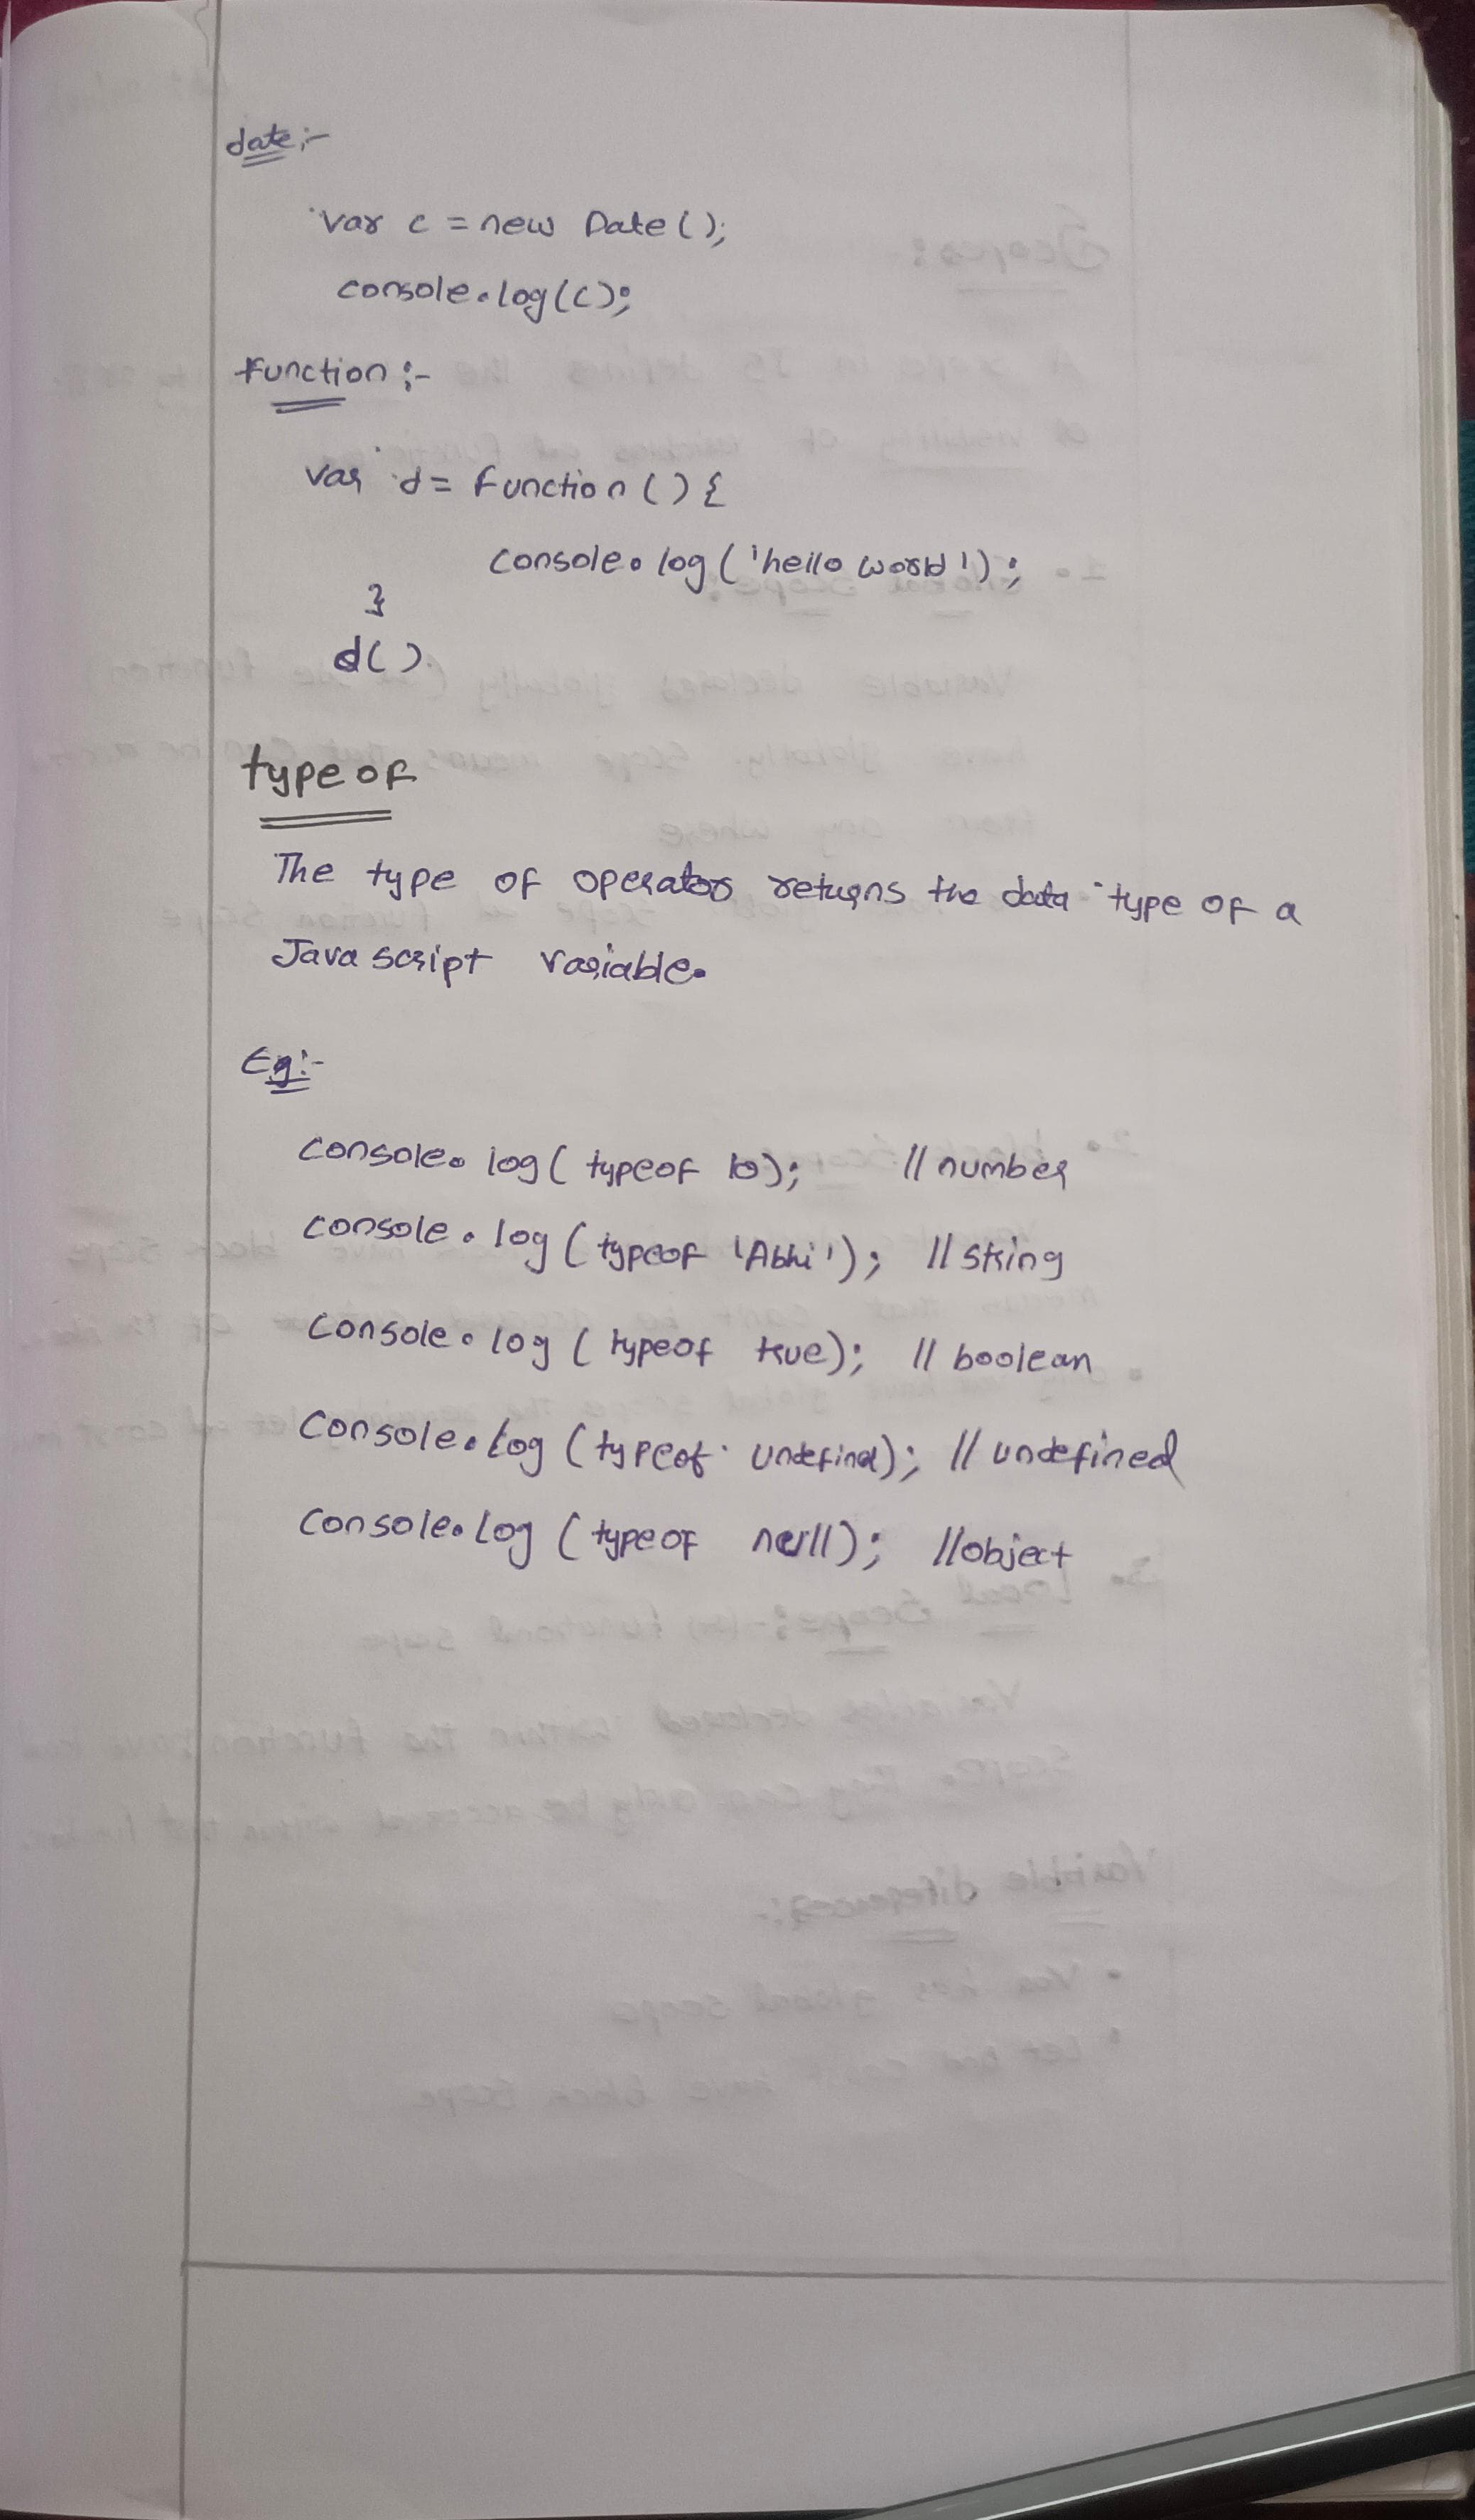 date:-
var c = new Date();
console.log(c);
function:-
var d = function(){
console.log('hello world');
}
d()
typeof
The type of operator returns the data type of a
Javascript variable.
Eg:-
console.log( typeof 10); // number
console.log( typeof 'Abhi'); // string
console.log( typeof true); // boolean
Console.log (typeof undefined); // undefined
Console.log ( typeof null); //object